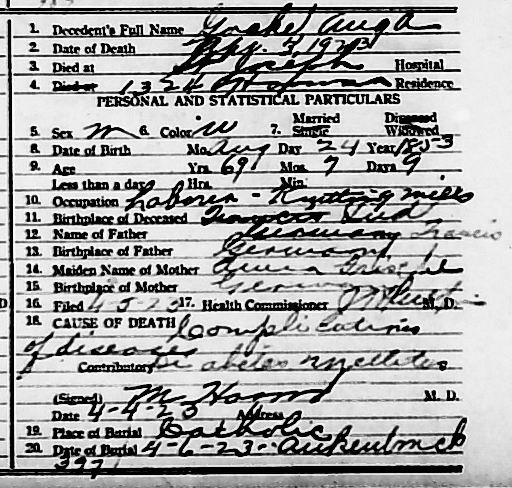 1. Decedent's Full Name Auga
2. Date of Death 3, 1923
3. Died at St Joseph Hospital
4. Died at 1324 Residence
PERSONAL AND STATISTICAL PARTICULARS
5. Sex M 6. Color W 7. Married Single Diseased Widowed
8. Date of Birth Mo. Aug Day 24 Year 1853
9. Age Yrs. 69 Mos. 7 Days 9
Less than a day Hrs. Min.
10. Occupation Laborer - Knitting mills
11. Birthplace of Deceased
12. Name of Father Germany Francis
13. Birthplace of Father Germany
14. Maiden Name of Mother Anna
15. Birthplace of Mother Germany
16. Filed 4-5-23 17. Health Commissioner M. D.
18. CAUSE OF DEATH Complications
of diseases
Contributory Diabetes Mellitus
(Signed) M. D.
Date 4-4-23 Address
19. Place of Burial Catholic
20. Date of Burial 4-6-23-
397